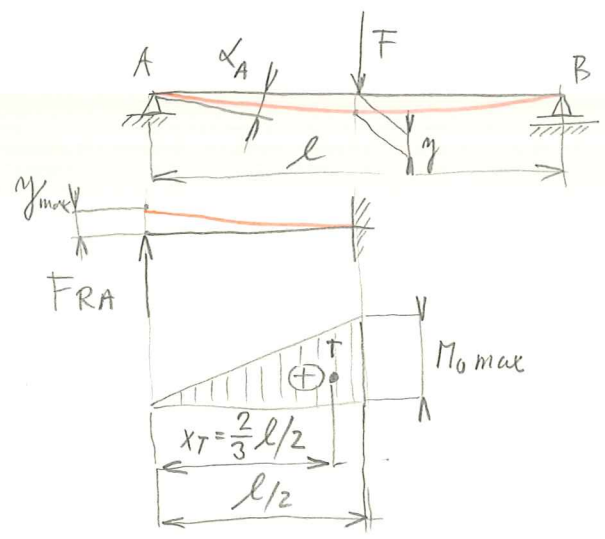 F
α_A
A
B
l
y
y_max
F_RA
T
+
M_o max
x_T = 2/3 l/2
l/2